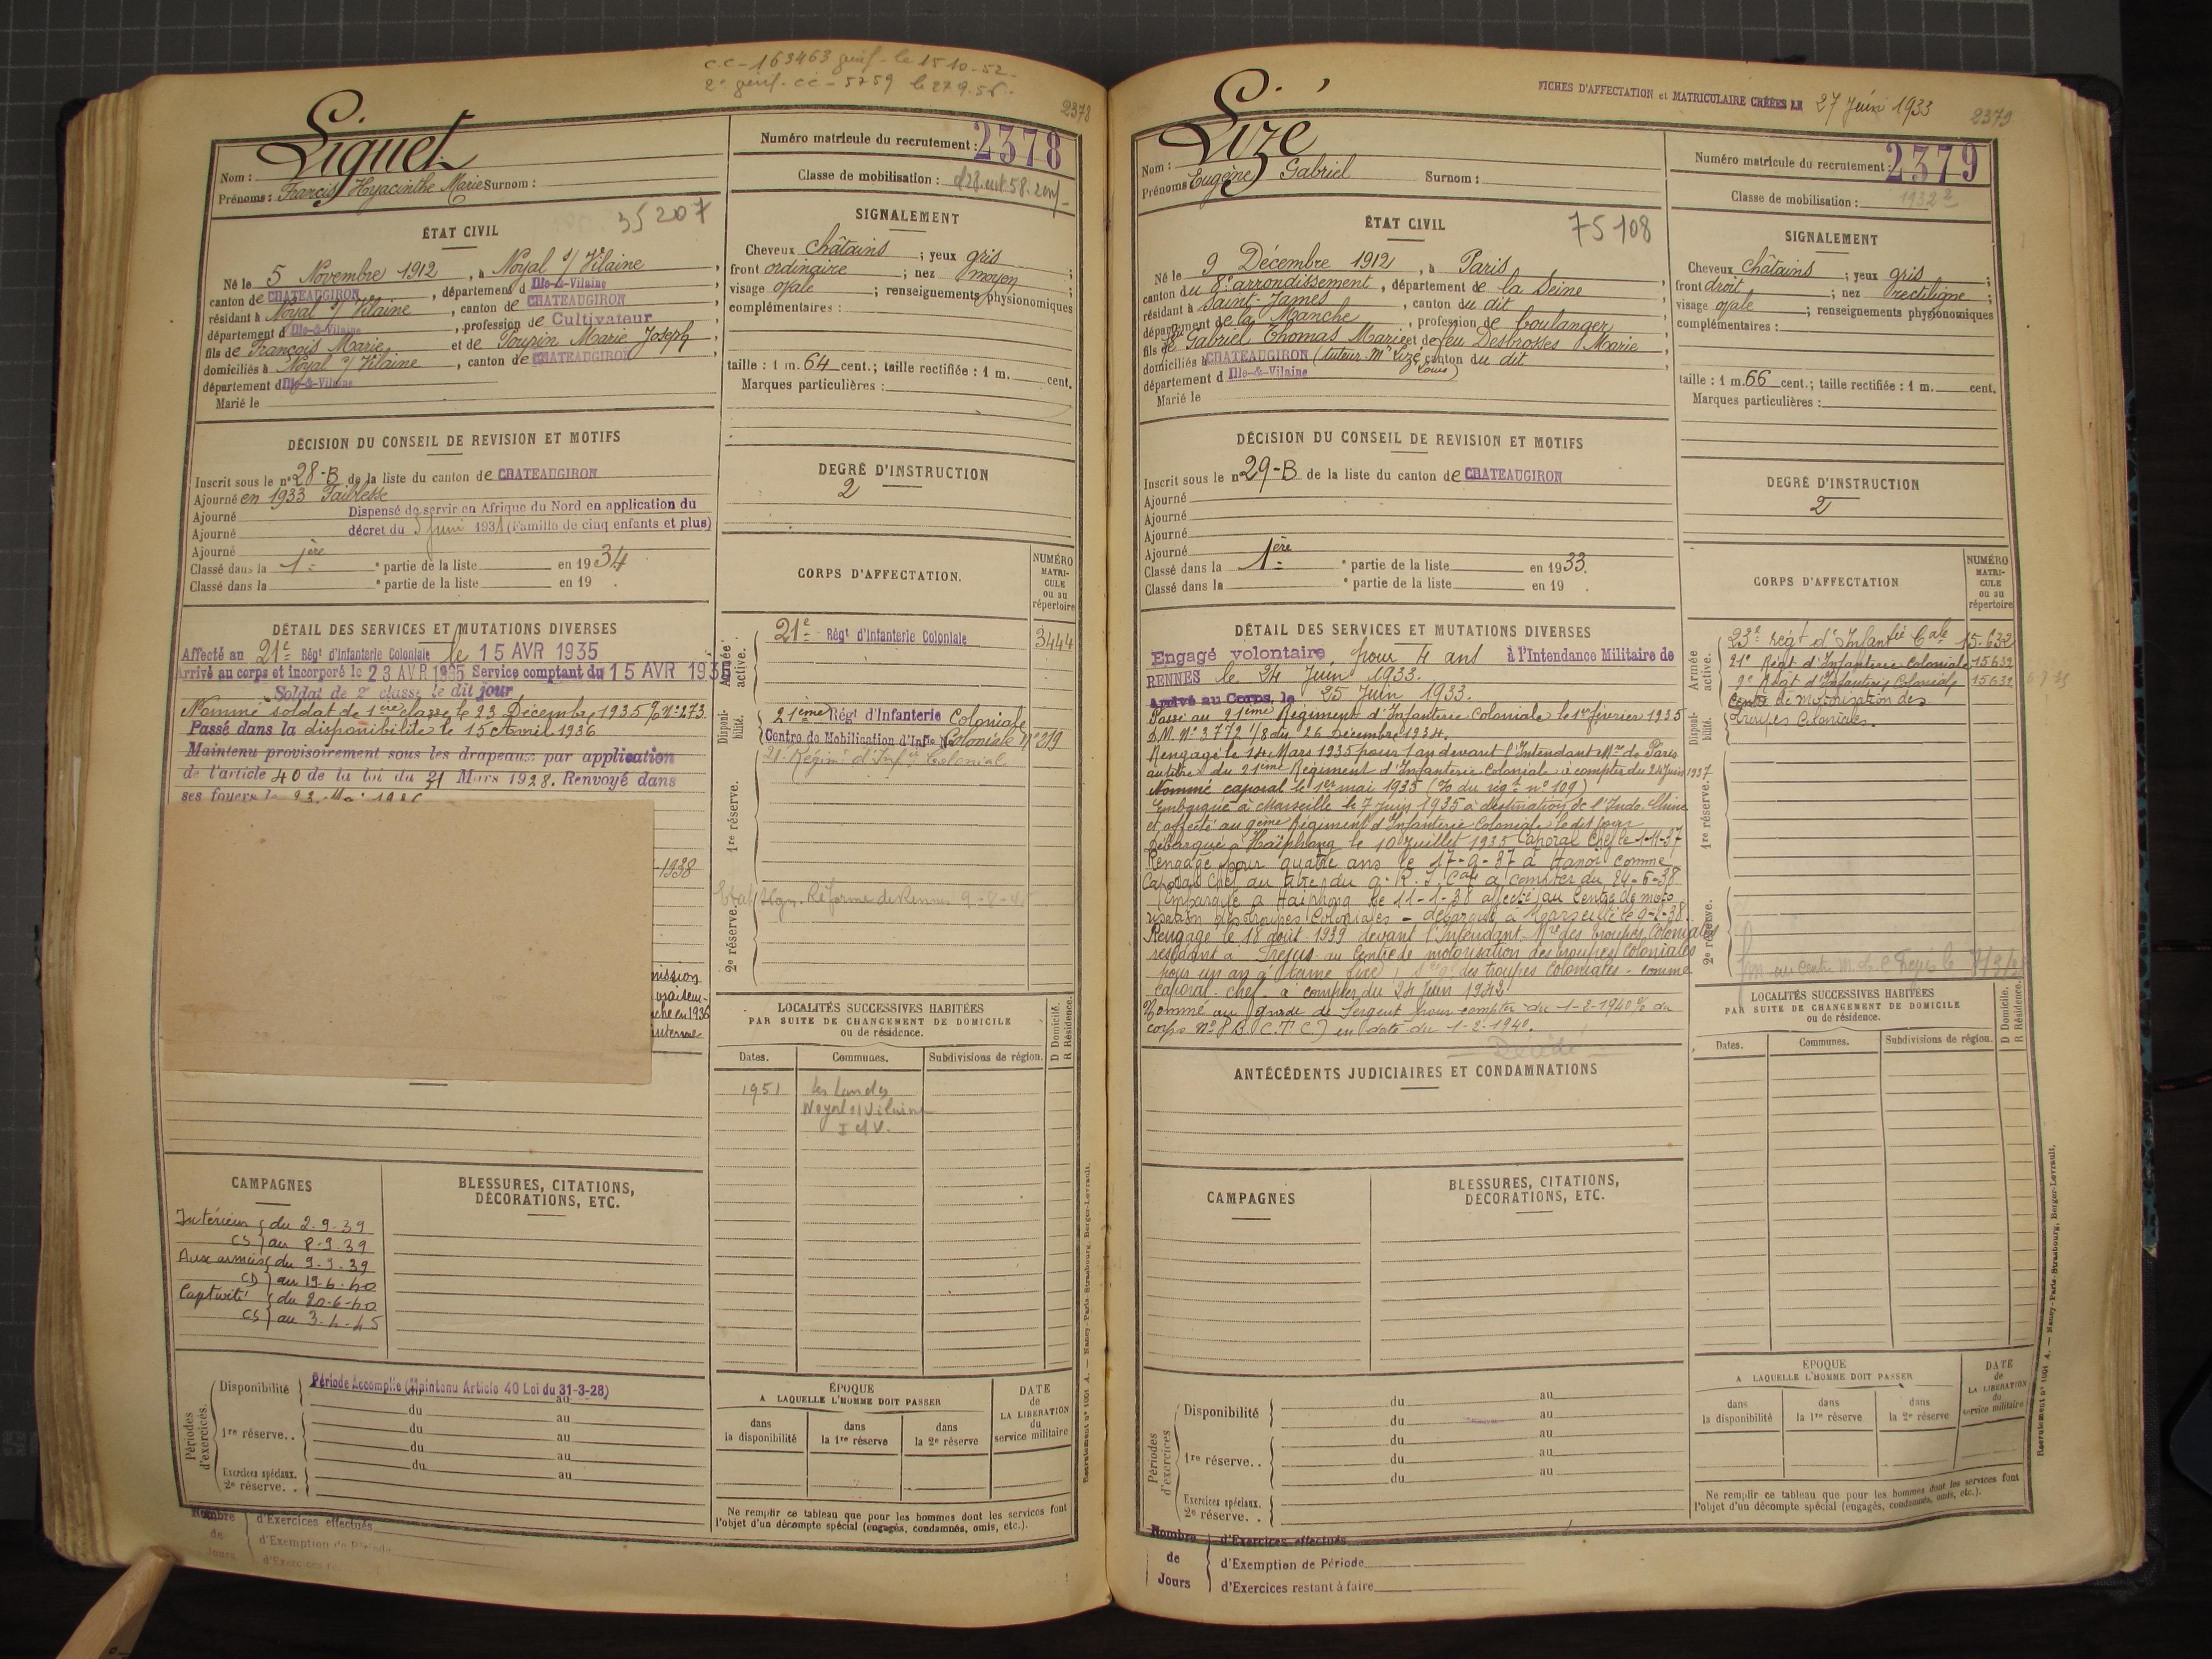 C.C - 163463 le 15-10-52
2378
Liquet
Nom :
Prénoms : Francis Hyacinthe Marie Surnom :
Numéro matricule du recrutement : 2378
Classe de mobilisation :
35207
ÉTAT CIVIL
Né le 5 Novembre 1912, à Noyal s/ Vilaine,
canton de CHATEAUGIRON, département d Ille-&-Vilaine
résidant à Noyal s/ Vilaine, canton de CHATEAUGIRON
département d Ille-&-Vilaine, profession de Cultivateur
fils de François Marie et de Poupin Marie Joseph,
domiciliés à Noyal s/ Vilaine, canton de CHATEAUGIRON
département d Ille-&-Vilaine
Marié le
SIGNALEMENT
Cheveux châtains ; yeux gris ;
front ordinaire ; nez moyen ;
visage ovale ; renseignements physionomiques
complémentaires :
taille : 1 m. 64 cent.; taille rectifiée : 1 m. cent.
Marques particulières :
DÉCISION DU CONSEIL DE REVISION ET MOTIFS
Inscrit sous le n° 28-B de la liste du canton de CHATEAUGIRON
Ajourné en 1933 Faiblesse
Ajourné Dispensé de servir en Afrique du Nord en application du
Ajourné décret du 5 Juin 1931 (Famille de cinq enfants et plus)
Ajourné
Classé dans la 1ère partie de la liste en 1934
Classé dans la partie de la liste en 19 .
DEGRÉ D'INSTRUCTION
2
DÉTAIL DES SERVICES ET MUTATIONS DIVERSES
Affecté au 21e Régt d'Infanterie Coloniale le 15 AVR 1935
Arrivé au corps et incorporé le 23 AVR 1935 Service comptant du 15 AVR 1935
Soldat de 2e classe le dit jour
Nommé soldat de 1ère classe le 23 Décembre 1935 % N° 273
Passé dans la disponibilité le 15 Avril 1936
Maintenu provisoirement sous les drapeaux par application
de l'article 40 de la loi du 31 Mars 1928. Renvoyé dans
ses foyers le
1938
CORPS D'AFFECTATION.
NUMÉRO MATRICULE ou au répertoire
Armée active.
21e Régt d'Infanterie Coloniale 3444
Disponibilité.
21ème Régt d'Infanterie Coloniale
Centre de Mobilisation d'Inf^ie Coloniale N° 219
21e Régim^t d'Inf^ie Colonial
1re réserve.
Réforme de Rennes
2e réserve.
LOCALITÉS SUCCESSIVES HABITÉES
PAR SUITE DE CHANGEMENT DE DOMICILE
ou de résidence.
D Domicile.
R Résidence.
Dates. Communes. Subdivisions de région.
1951 Les Landes
Noyal s/ Vilaine
I et V.
CAMPAGNES
Intérieur { du 2-9-39
CS } au 8-9-39
Aux armées { du 9-9-39
CD } au 19-6-40
Captivité { du 20-6-40
CS } au 3-4-45
BLESSURES, CITATIONS,
DÉCORATIONS, ETC.
Périodes d'exercices.
Disponibilité Période Accomplie (Maintenu Article 40 Loi du 31-3-28)
du au
1re réserve. . du au
du au
du au
Exercices spéciaux.
2e réserve. .
ÉPOQUE
A LAQUELLE L'HOMME DOIT PASSER
dans la disponibilité
dans la 1re réserve
dans la 2e réserve
DATE de LA LIBÉRATION du service militaire
Ne remplir ce tableau que pour les hommes dont les services font
l'objet d'un décompte spécial (engagés, condamnés, omis, etc.).
Nombre de Jours
d'Exercices effectués
d'Exemption de Période
Recrutement n° 1001 A. — Nancy-Paris-Strasbourg, Berger-Levrault.
FICHES D'AFFECTATION et MATRICULAIRE CRÉÉES LE 27 Juin 1933
2379
Lizé
Nom :
Prénoms Eugène Gabriel Surnom :
Numéro matricule du recrutement : 2379
Classe de mobilisation : 1932 2
75108
ÉTAT CIVIL
Né le 9 Décembre 1912, à Paris,
canton du 8e arrondissement, département de la Seine
résidant à Saint-James, canton du dit
département de la Manche, profession de boulanger
fils de Gabriel Thomas Marie et de feu Desbrosses Marie
domiciliés à CHATEAUGIRON (tuteur Mr Lizé Louis) canton du dit
département d Ille-&-Vilaine
Marié le
SIGNALEMENT
Cheveux châtains ; yeux gris ;
front droit ; nez rectiligne ;
visage ovale ; renseignements physionomiques
complémentaires :
taille : 1 m. 66 cent.; taille rectifiée : 1 m. cent.
Marques particulières :
DÉCISION DU CONSEIL DE REVISION ET MOTIFS
Inscrit sous le n° 29-B de la liste du canton de CHATEAUGIRON
Ajourné
Ajourné
Ajourné
Ajourné
Classé dans la 1ère partie de la liste en 1933.
Classé dans la partie de la liste en 19 .
DEGRÉ D'INSTRUCTION
2
DÉTAIL DES SERVICES ET MUTATIONS DIVERSES
Engagé volontaire pour 4 ans à l'Intendance Militaire de
RENNES le 24 Juin 1933.
Arrivé au Corps, le 25 Juin 1933.
Passé au 21ème Régiment d'Infanterie Coloniale le 1er février 1935
D.M. N° 3772 1/8 du 26 Décembre 1934.
Rengagé le 14 Mars 1935 pour 1 an devant l'Intendant Mre de Paris
au titre du 21ème Régiment d'Infanterie Coloniale à compter du 24 Juin 1937
Nommé caporal le 1er mai 1935 (% du régt n° 109)
Embarqué à Marseille le 7 Juin 1935 à destination de l'Indo-Chine
et affecté au 9ème Régiment d'Infanterie Coloniale le dit jour
Débarqué à Haïphong le 10 Juillet 1935 Caporal Chef le 1-11-37
Rengagé pour quatre ans le 17-9-37 à Hanoï comme
Caporal Chef au titre du 9e R.I. Cale à compter du 24-6-38
Embarqué à Haiphong le 11-1-38 affecté au Centre de moto
risation des troupes Coloniales - débarqué à Marseille le
Rengagé le 18 août 1939 devant l'Intendant Mre des Troupes Coloniales
résidant à Fréjus au Centre de motorisation des troupes Coloniales
pour un an à terme fixe des troupes Coloniales - comme
caporal-chef à compter du 24 Juin 1942
Nommé au grade de Sergent pour compter du 1-2-1940 % du
corps N° 8 B.C.T.C) en date du 1-2-1940.
Décédé
CORPS D'AFFECTATION
NUMÉRO MATRICULE ou au répertoire
Armée active.
23e régt d'Infantie Cale 15.632
21e Régt d'Infanterie Coloniale 15632
9e Régt d'Infanterie Coloniale 15632
Centre de Motorisation des
Troupes Coloniales.
Disponibilité.
1re réserve.
2e réserve.
ANTÉCÉDENTS JUDICIAIRES ET CONDAMNATIONS
LOCALITÉS SUCCESSIVES HABITÉES
PAR SUITE DE CHANGEMENT DE DOMICILE
ou de résidence.
D Domicile.
R Résidence.
Dates. Communes. Subdivisions de région.
CAMPAGNES
BLESSURES, CITATIONS,
DÉCORATIONS, ETC.
Périodes d'exercices.
Disponibilité du au
du au
1re réserve. . du au
du au
du au
Exercices spéciaux.
2e réserve. .
ÉPOQUE
A LAQUELLE L'HOMME DOIT PASSER
dans la disponibilité
dans la 1re réserve
dans la 2e réserve
DATE de LA LIBÉRATION du service militaire
Ne remplir ce tableau que pour les hommes dont les services font
l'objet d'un décompte spécial (engagés, condamnés, omis, etc.).
Nombre de Jours
d'Exercices effectués
d'Exemption de Période
d'Exercices restant à faire
Recrutement n° 1001 A. — Nancy-Paris-Strasbourg, Berger-Levrault.